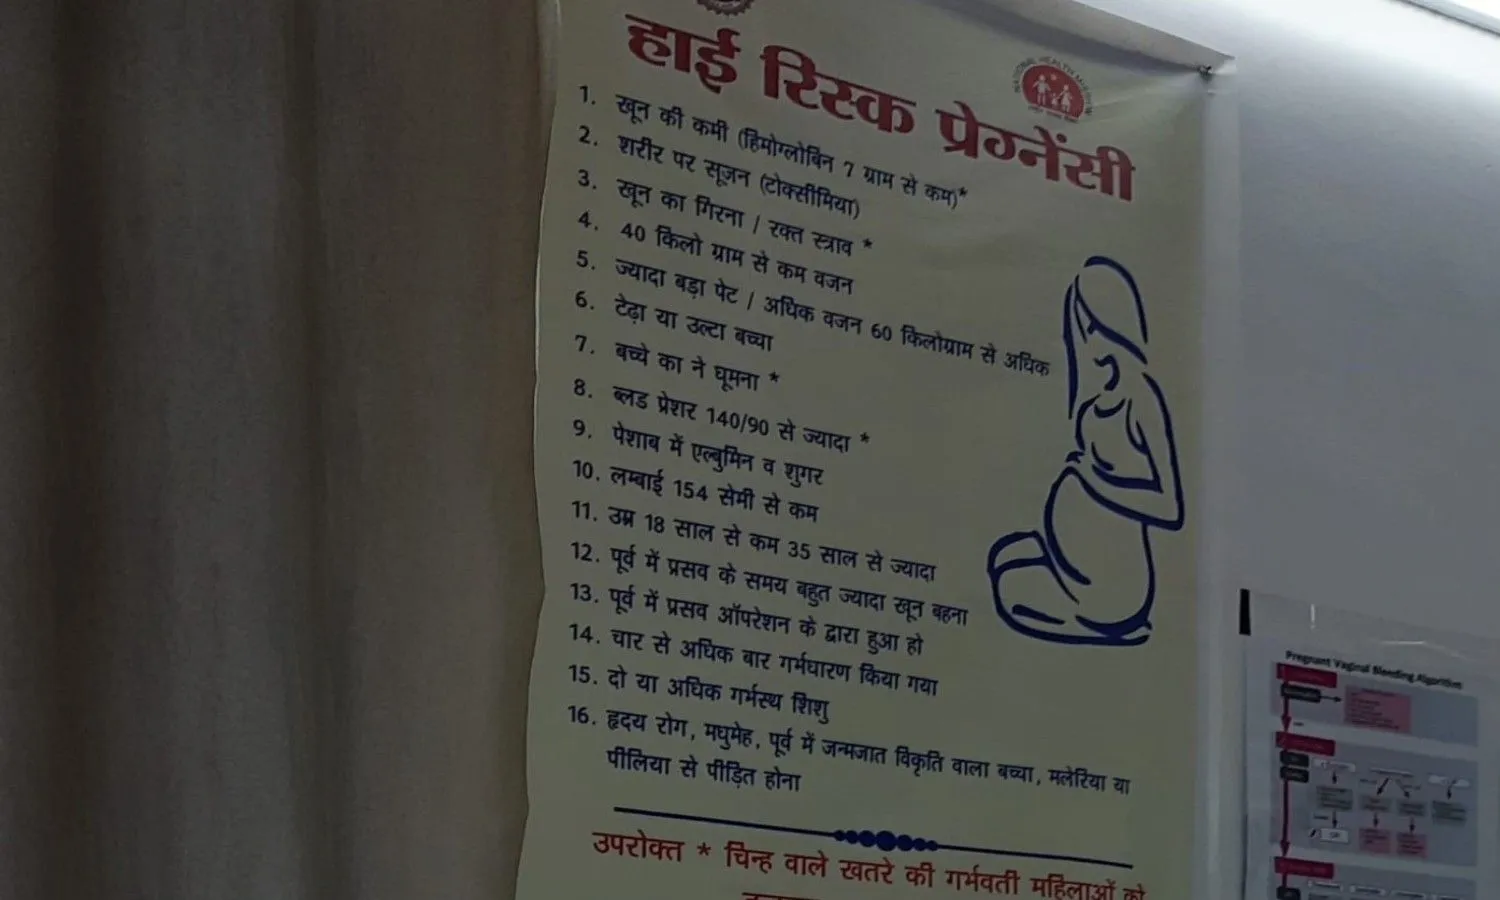 हाई रिस्क प्रेग्नेंसी
NATIONAL HEALTH MISSION
1. खून की कमी (हिमोग्लोबिन 7 ग्राम से कम)*
2. शरीर पर सूजन (टोक्सीमिया)
3. खून का गिरना / रक्त स्त्राव *
4. 40 किलो ग्राम से कम वजन
5. ज्यादा बड़ा पेट / अधिक वजन 60 किलोग्राम से अधिक
6. टेढ़ा या उल्टा बच्चा
7. बच्चे का ने घूमना *
8. ब्लड प्रेशर 140/90 से ज्यादा *
9. पेशाब में एल्बुमिन व शुगर
10. लम्बाई 154 सेमी से कम
11. उम्र 18 साल से कम 35 साल से ज्यादा
12. पूर्व में प्रसव के समय बहुत ज्यादा खून बहना
13. पूर्व में प्रसव ऑपरेशन के द्वारा हुआ हो
14. चार से अधिक बार गर्मधारण किया गया
15. दो या अधिक गर्मस्थ शिशु
16. हृदय रोग, मधुमेह, पूर्व में जन्मजात विकृति वाला बच्चा, मलेरिया या
पीलिया से पीड़ित होना
उपरोक्त * चिन्ह वाले खतरे की गर्मवती महिलाओं को
Pregnant Vaginal Bleeding Algorithm